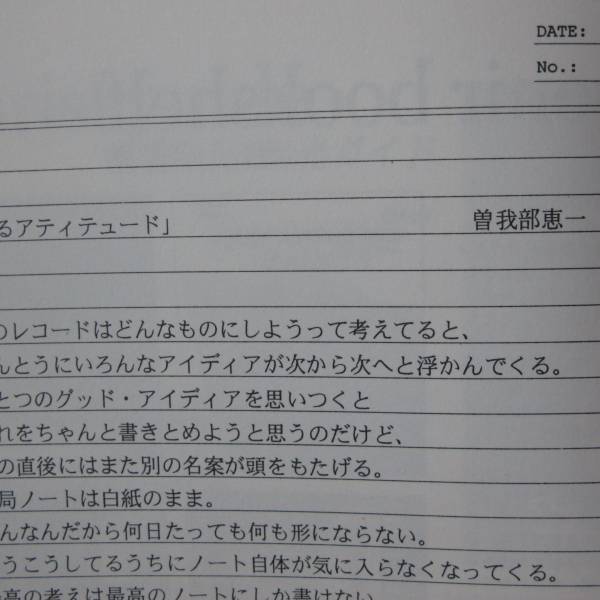 DATE:
No.:
るアティテュード」 曽我部恵一
のレコードはどんなものにしようって考えてると、
んとうにいろんなアイディアが次から次へと浮かんでくる。
とつのグッド・アイディアを思いつくと
れをちゃんと書きとめようと思うのだけど、
の直後にはまた別の名案が頭をもたげる。
局ノートは白紙のまま。
んなんだから何日たっても何も形にならない。
うこうしてるうちにノート自体が気に入らなくなってくる。
高の考えは最高のノートにしか書けない